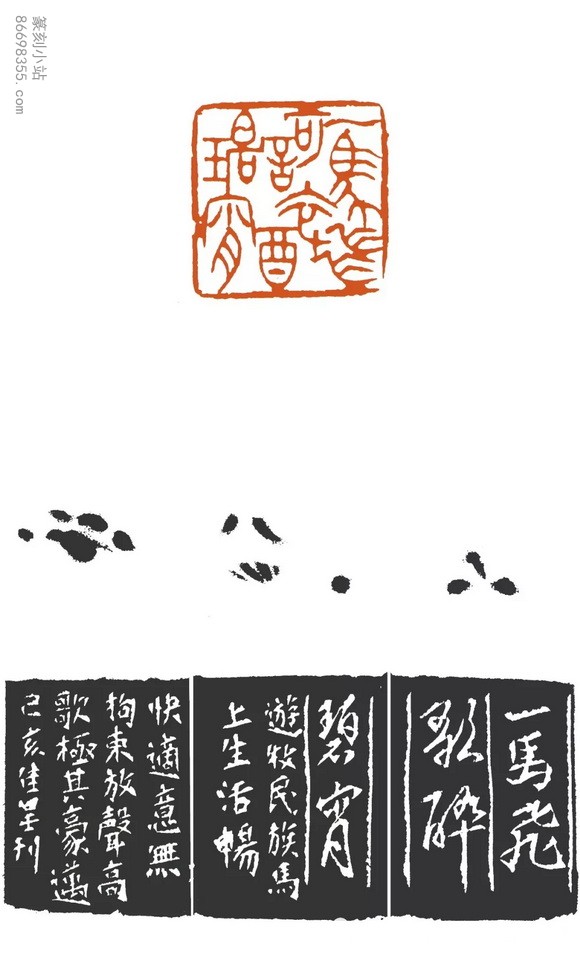 篆刻小站
86698355.com
一馬飛
歌醉
碧宵
一馬飛
歌醉
碧宵
遊牧民族馬
上生活暢
快適意無
拘束放聲高
歌極其豪邁
己亥佳刊